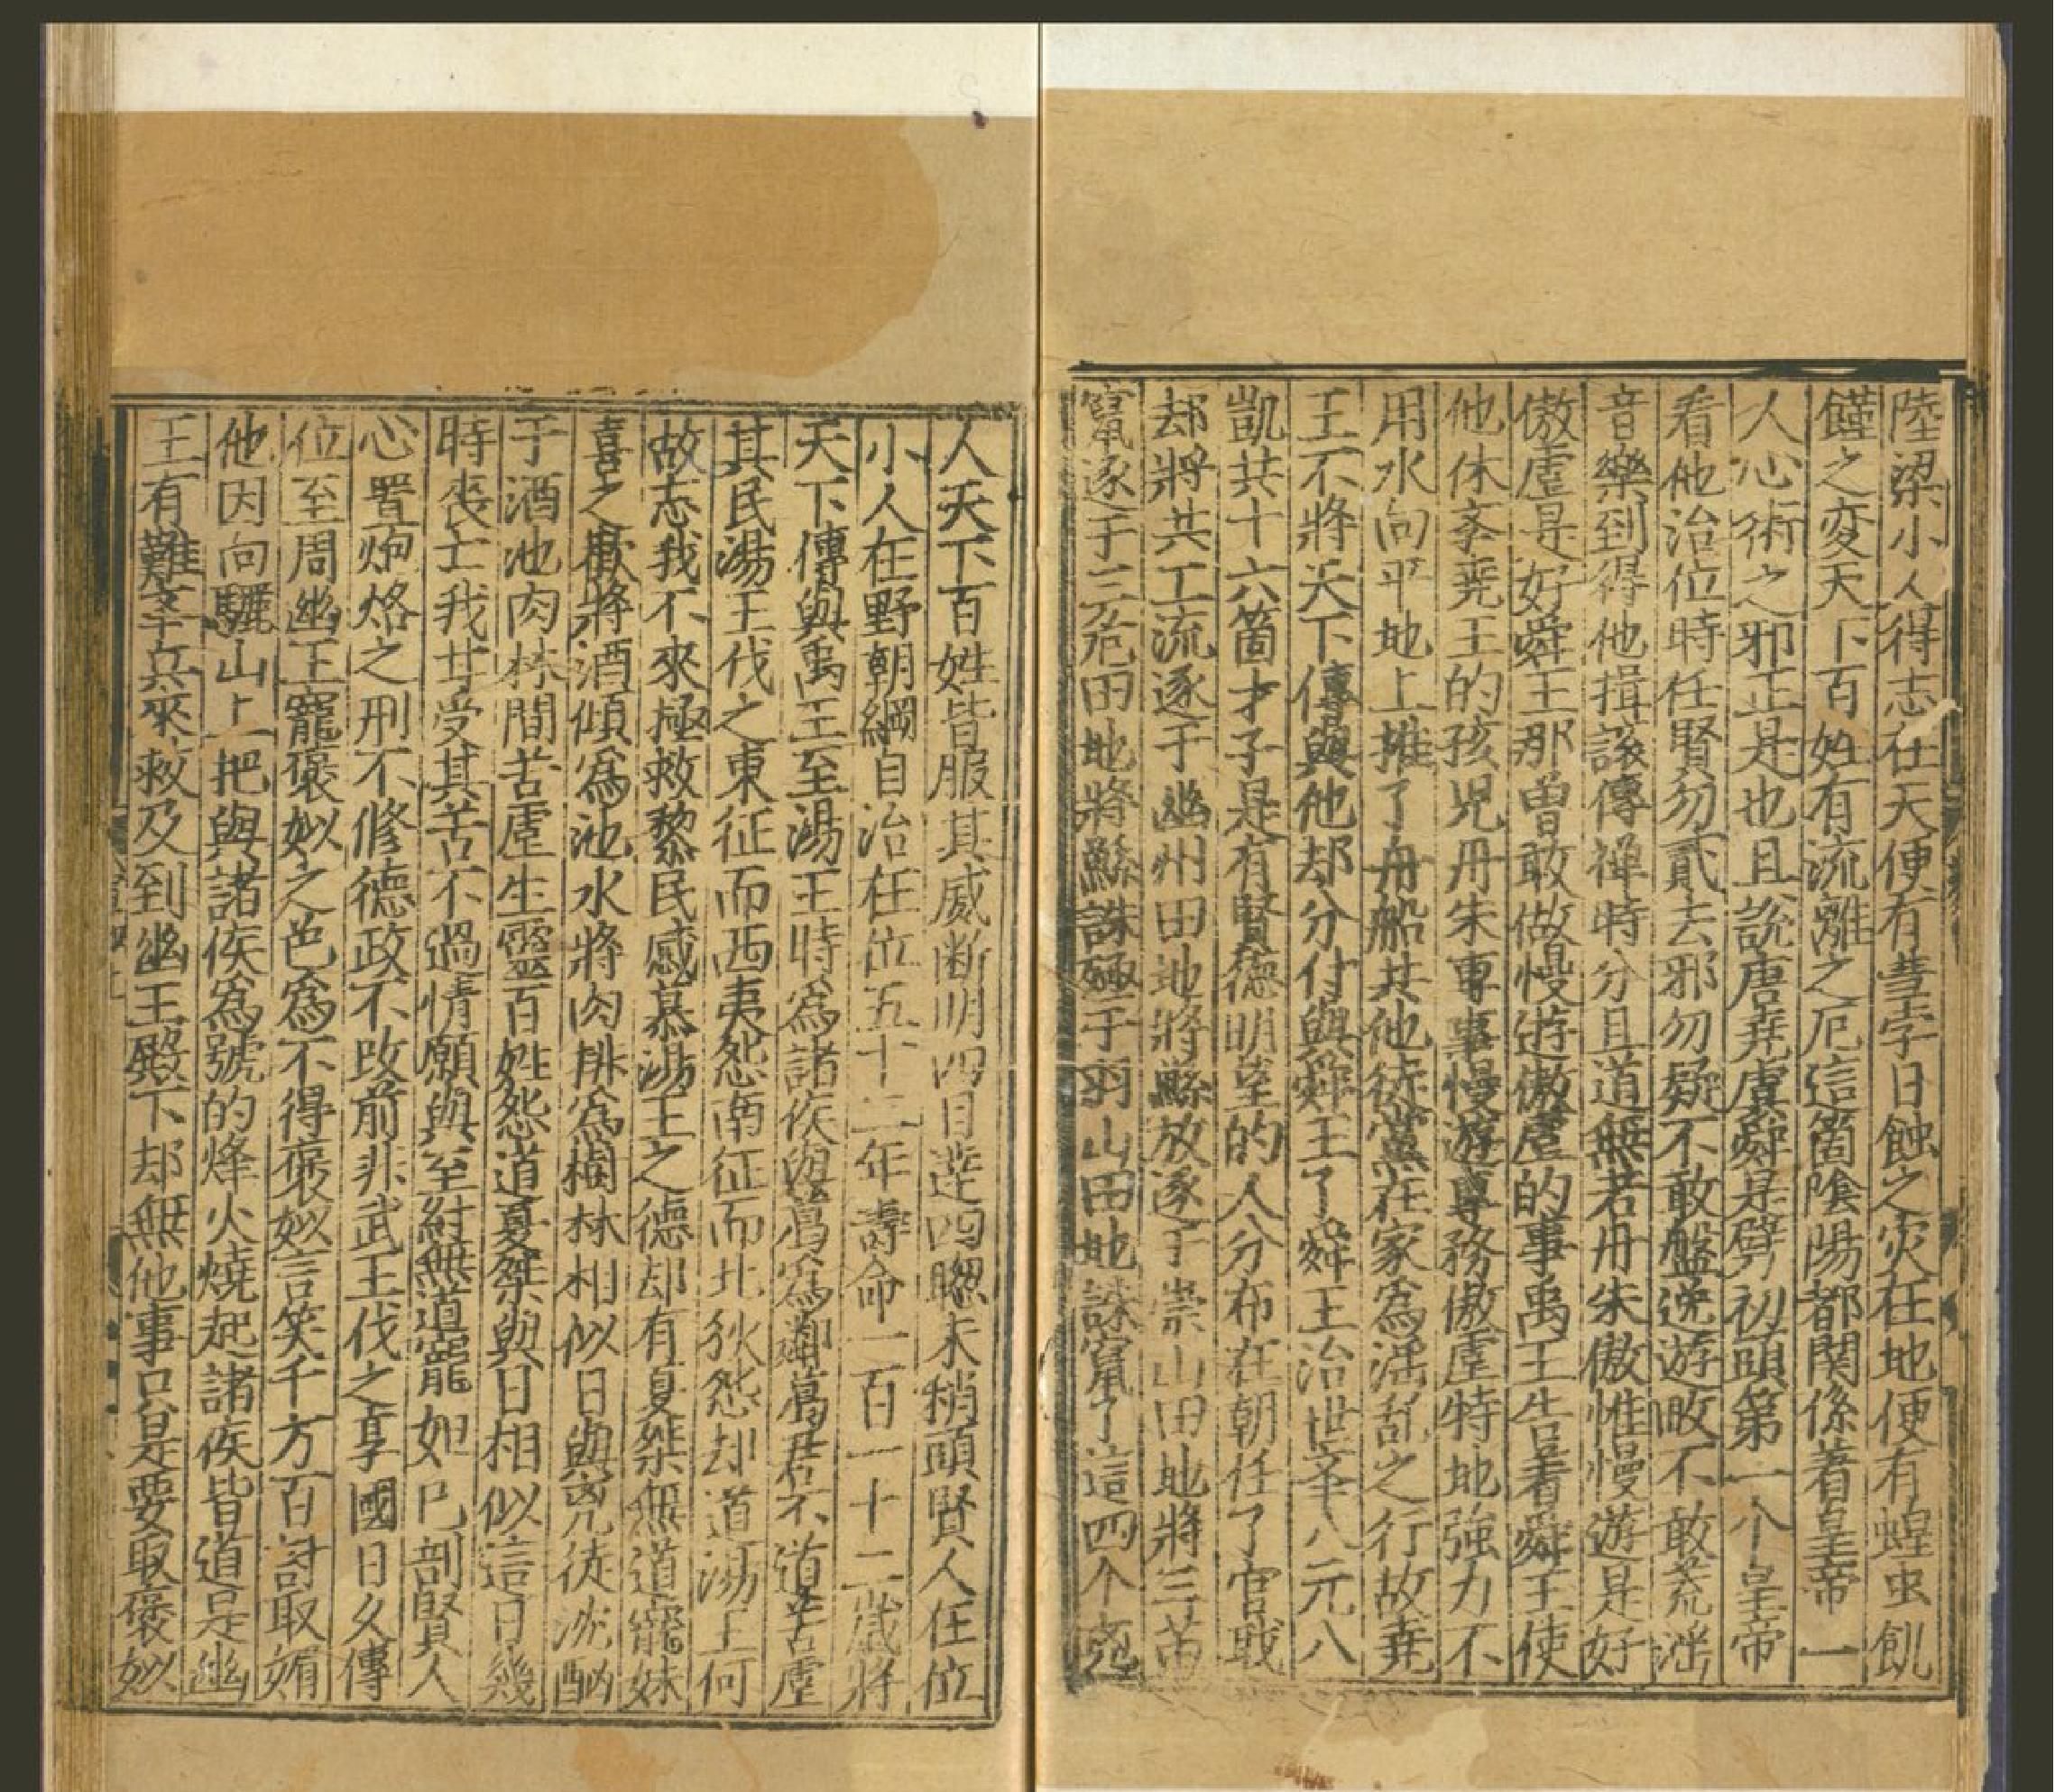 陸梁小人得志在天便有彗孛日蝕之灾在地便有蝗虫飢
饉之変天下百姓有流離之厄這箇隂陽都関係着皇帝一
人心術之邪正是也且說唐堯虞舜是劈初頭第一个皇帝
看他治位時任賢勿貳去邪勿疑不敢盤逸遊畋不敢荒滛
音樂到得他揖譲傳禅時分且道無若丹朱傲惟慢遊是好
傲虐是好舜王那曽敢做慢遊傲虐的事禹王告着舜王使
他休斈堯王的孩児丹朱專事慢遊專務傲虐特地強力不
用水向平地上推了舟船共他徒黨在家爲滛乱之行故堯
王不將天下傳與他却分付與舜王了舜王治世宰八元八
凱共十六箇才子是有賢德明聖的人分布在朝任了官職
却將共工流逐于幽州田地將驩放逐于崇山田地將三苗
竄逐于三危田地將鯀誅殛于羽山田地誅竄了這四个㐫
人天下百姓皆服其威断明四目達四聦末稍頭賢人在位
小人在野朝綱自治在位五十二年壽命一百一十二歲將
天下傳與禹王至湯王時爲諸侯與葛爲鄰葛君不道苦虐
其民湯王伐之東征而西夷怨南征而北狄怨却道湯王何
故忘我不來極救黎民感慕湯王之德却有夏桀無道寵妹
喜之歡將酒傾爲池水將肉排爲樹林相似日與兇徒沈酗
于酒池肉林間苦虐生靈百姓怨道夏桀與日相似這日幾
時喪亡我甘受其苦不過情願與至紂無道寵妲已剖賢人
心置炮烙之刑不修德政不改前非武王伐之享國日久傳
位至周幽王寵褒姒之色爲不得褒姒言笑千方百計取媚
他因向驪山上把與諸侯爲號的烽火燒起諸侯皆道是幽
王有難牽兵來救及到幽王殿下却無他事只是要取褒姒